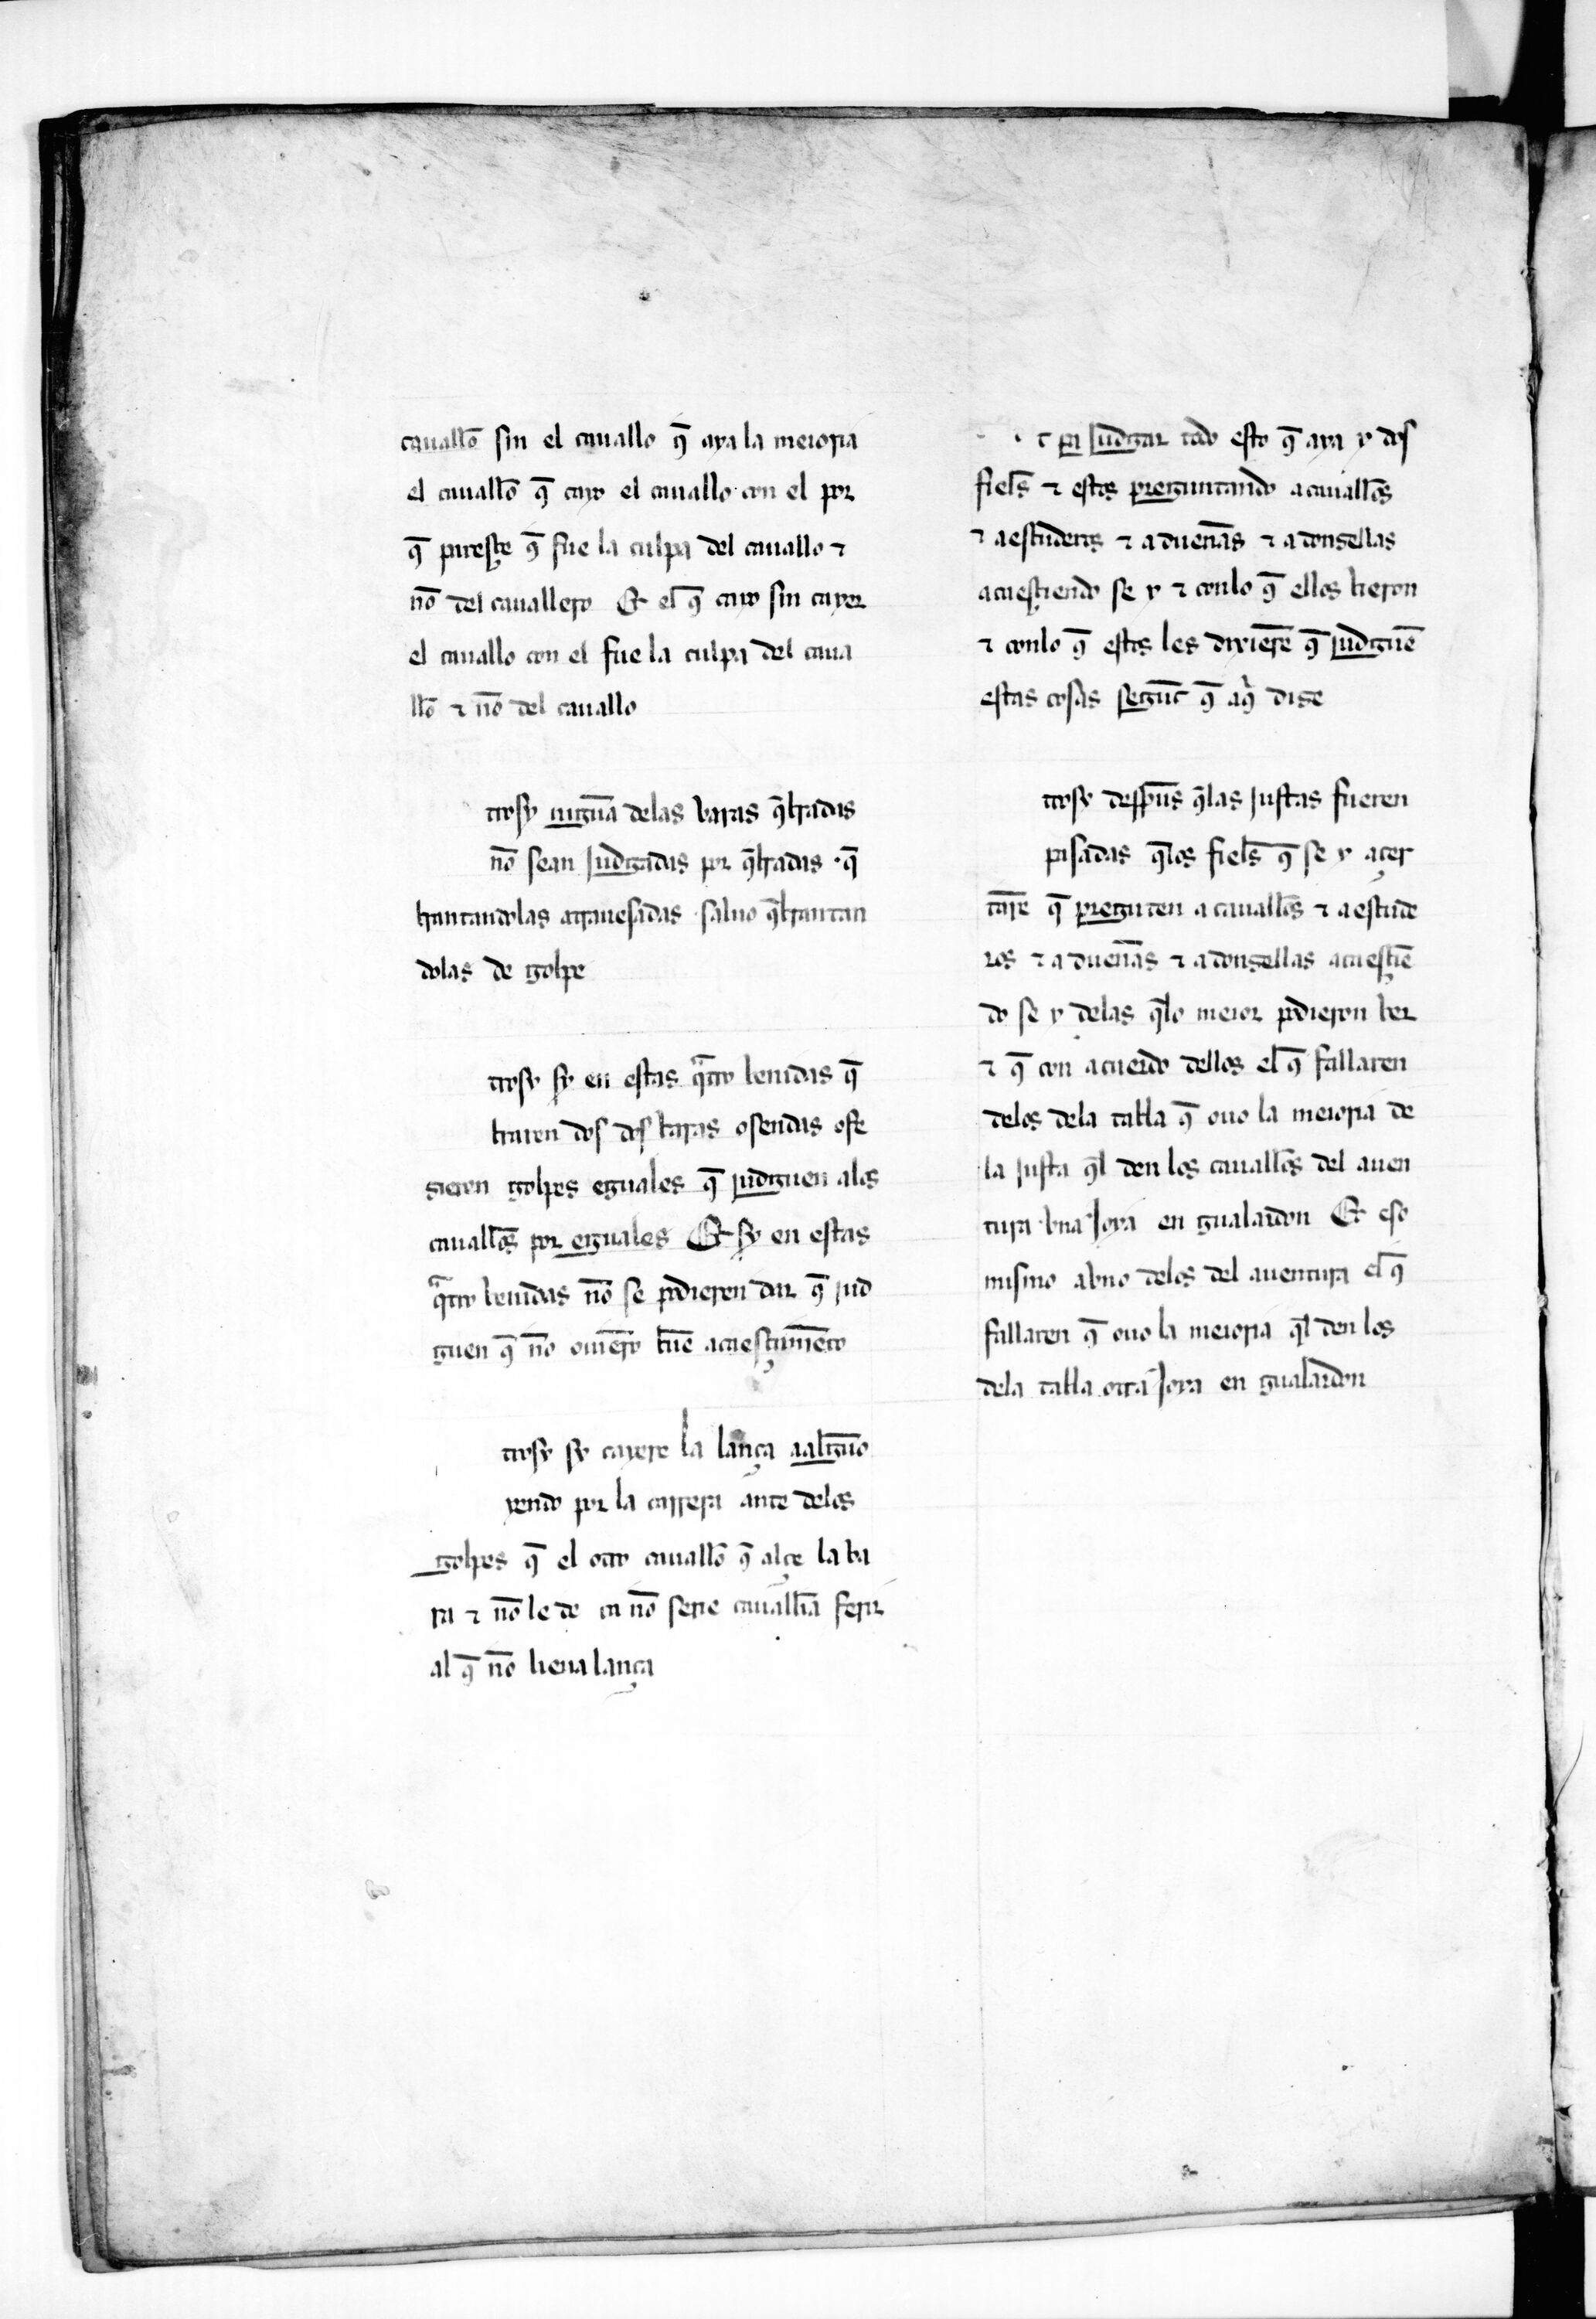 cauallō sin el cauallo q̄ aya la meioria
el cauallō q̄ cayo el cauallo con el por
q̄ paresçe q̄ fue la culpa del cauallo ⁊
nō del cauallero Et el q̄ cayo sin cayer
el cauallo con el fue la culpa del caua
llō ⁊ nō del cauallo
trosy nīguā delas varas q̄bradas
nō sean judgadas por q̄bradas · q̄
brantandolas atrauesadas saluo q̄brantan
dolas de golpe
trosy sy en estas q̄tro venidas q̄
braren dos dos varas o sendas o fe
zieren golpes eguales q̄ judguen alos
cauallōs por eiguales Et sy en estas
q̄tro venidas nō se podieren dar q̄ jud
guen q̄ nō ouierō buē acaesçimīēto
trosy sy cayere la lança a alguō
yendo por la carrera ante delos
golpes q̄ el otro cauallō q̄ alçe la va
ra ⁊ nō le de ca nō serie cauallīa ferir
al q̄ nō lieua lança
t pa judgar todo esto q̄ aya y dos
fiels̄ ⁊ estos preguntando a cauallōs
⁊ a escuderos ⁊ a dueñas ⁊ a donzellas
acaesçiendo se y ⁊ conlo q̄ ellos vieron
⁊ conlo q̄ estos les dixierē q̄ judguē
estas cosas segūt q̄ aq̄ dize
trosy desp̄us q̄las justas fueren
pasadas q̄los fiels̄ q̄ se y açer
tarē q̄ pregūten a cauallōs ⁊ a escude
ros ⁊ a dueñas ⁊ a donzellas acaesçiē
do se y delas q̄lo meior podieron ver
⁊ q̄ con acuerdo dellos el q̄ fallaren
delos dela tabla q̄ ouo la meioria de
la justa q̄l den los cauallōs del auen
tura vna joya en gualardon Et eso
mismo a vno delos del auentura el q̄
fallaren q̄ ouo la meioria q̄l den los
dela tabla otra joya en gualardon